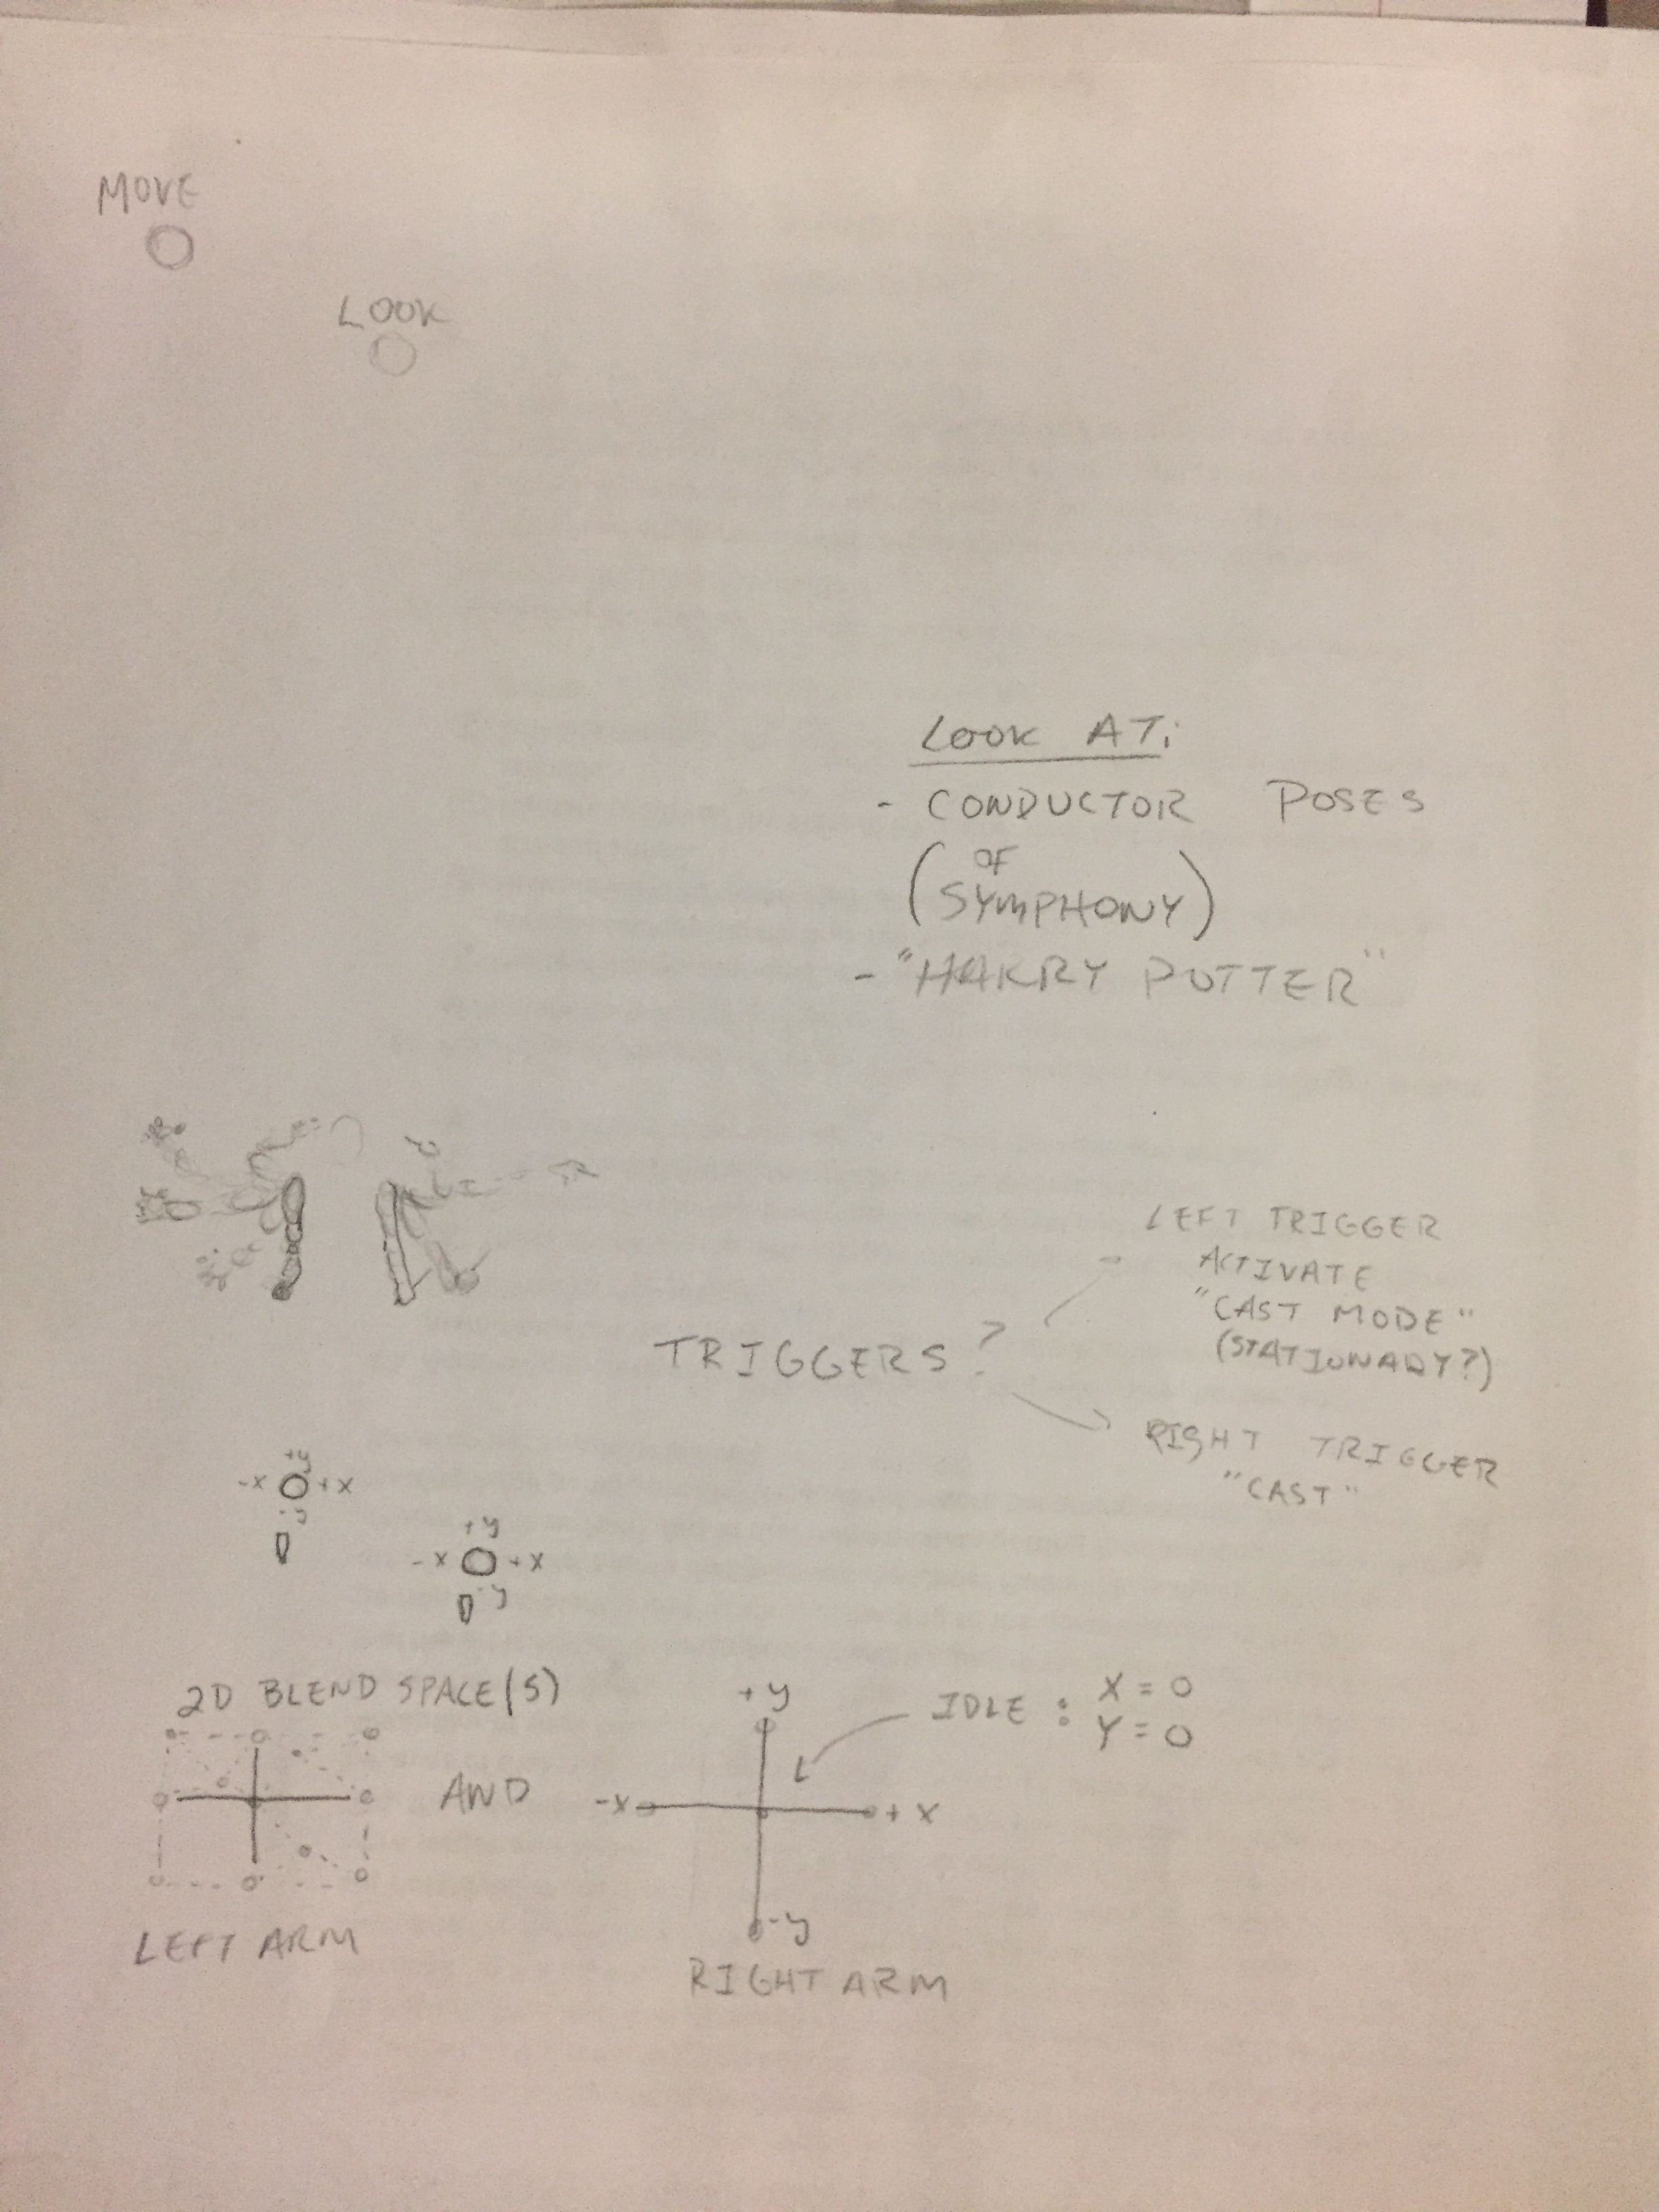 MOVE
LOOK
LOOK AT:
- CONDUCTOR POSES
(OF
SYMPHONY)
- "HARRY POTTER"
TRIGGERS?
LEFT TRIGGER
ACTIVATE
"CAST MODE"
(STATIONARY?)
RIGHT TRIGGER
"CAST"
+y
-x +x
-y
+y
-x +x
-y
2D BLEND SPACE(S)
AND
LEFT ARM
+y
-x +x
-y
RIGHT ARM
IDLE : X = 0
Y = 0